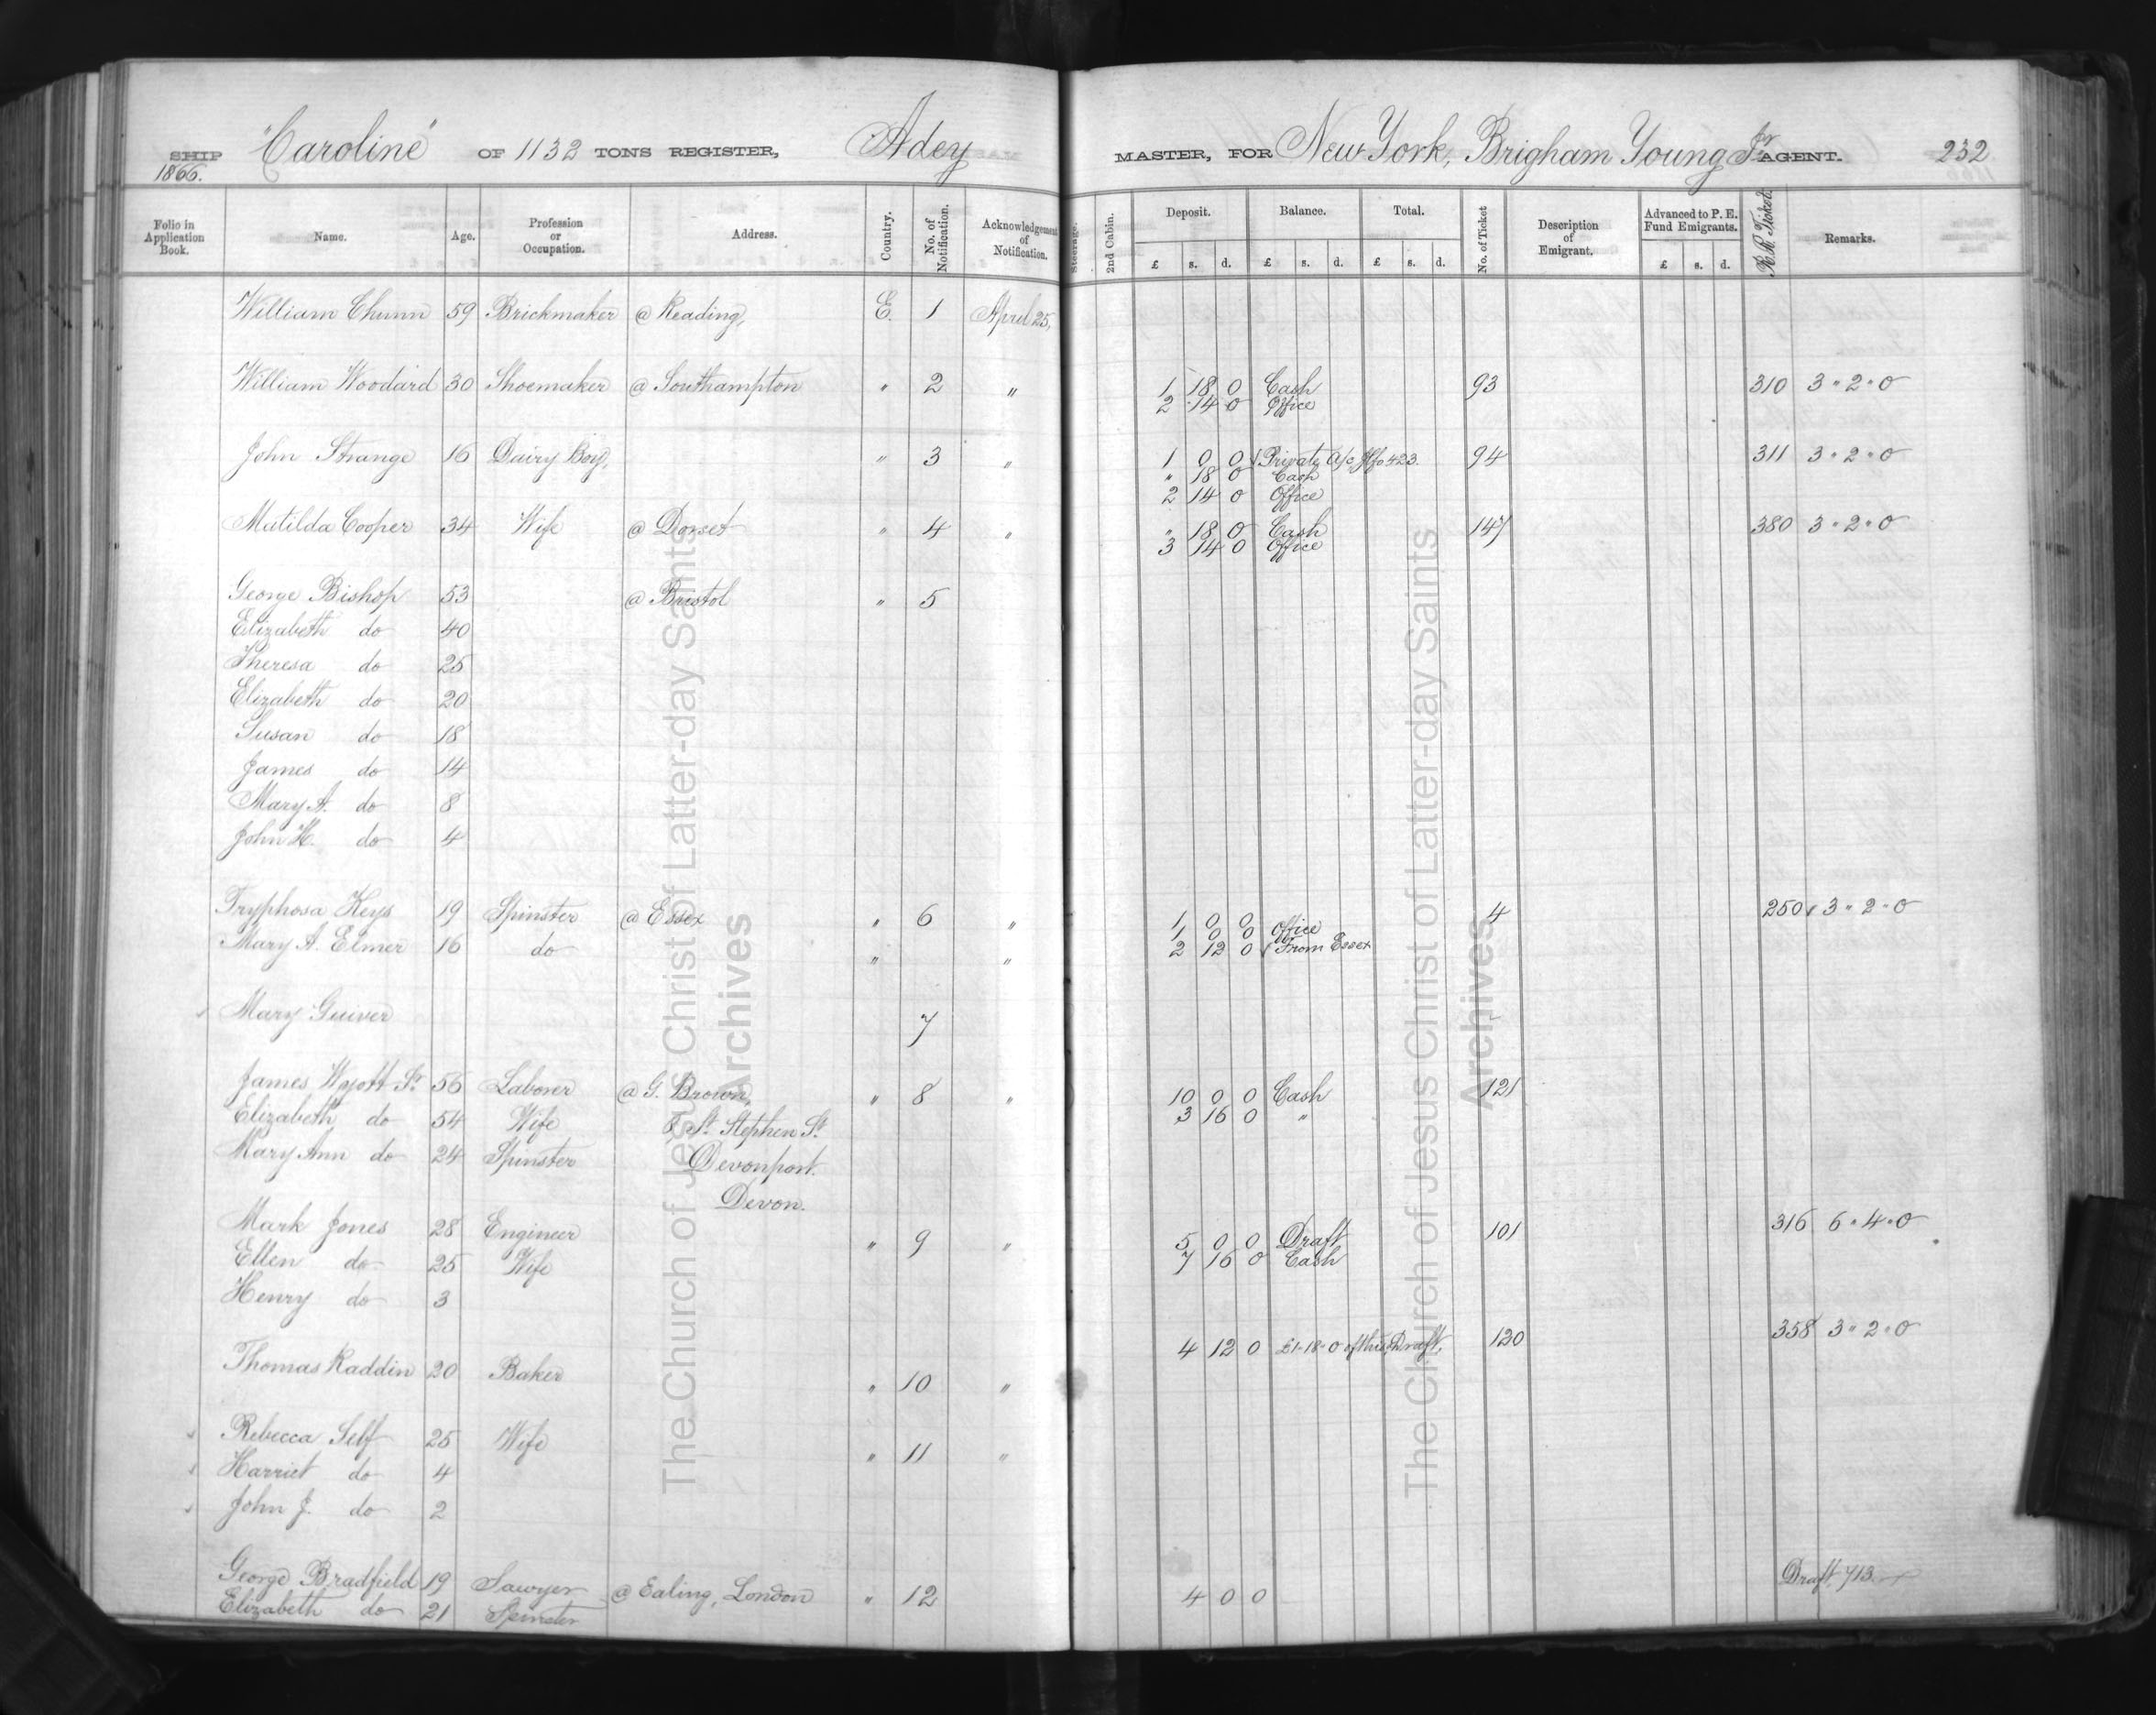 SHIP "Caroline" OF 1132 TONS REGISTER, Adey MASTER, FOR New York, Brigham Young Jr AGENT. 232
1866.
Folio in Application Book. Name. Age. Profession or Occupation. Address. Country. No. of Notification. Acknowledgement of Notification. Steerage. 2nd Cabin. Deposit. Balance. Total. No. of Ticket Description of Emigrant. Advanced to P. E. Fund Emigrants. R.R. Ticket. Remarks.
£ s. d. £ s. d. £ s. d. £ s. d.
William Chunn 59 Brickmaker @ Reading, E. 1 April 25,
William Woodard 30 Shoemaker @ Southampton " 2 " 1 18 0 Cash 93 310 3 " 2 " 0
2 14 0 Office
John Strange 16 Dairy Boy, " 3 " 1 0 0 Private A/c fo 423. 94 311 3 " 2 " 0
" 18 0 Cash
2 14 0 Office
Matilda Cooper 34 Wife @ Dorset " 4 " " 18 0 Cash 147 380 3 " 2 " 0
3 14 0 Office
George Bishop 53 @ Bristol " 5
Elizabeth do 40
Theresa do 25
Elizabeth do 20
Susan do 18
James do 14
Mary A. do 8
John H. do 4
Tryphosa Keys 19 Spinster @ Essex " 6 " 1 0 0 4 250 3 " 2 " 0
1 0 0 Office
Mary A. Elmer 16 do " " 2 12 0 From Essex
Mary Guiver 7
James Wyott Sr 56 Laborer @ G. Brown, " 8 " 10 0 0 Cash 121
Elizabeth do 54 Wife 8, St. Stephen St. 3 16 0 "
Mary Ann do 24 Spinster Devonport.
Devon.
Mark Jones 28 Engineer " 9 " 5 0 0 Draft 101 316 6 " 4 " 0
Ellen do 25 Wife 7 16 0 Cash
Henry do 3
Thomas Raddin 20 Baker " 10 " 4 12 0 £1-18-0 of this Draft, 120 358 3 " 2 " 0
Rebecca Self 25 Wife " 11 "
Harriet do 4
John J. do 2
George Bradfield 19 Sawyer @ Ealing, London " 12 4 0 0 Draft 713
Elizabeth do 21 Spinster
The Church of Jesus Christ of Latter-day Saints
Archives
The Church of Jesus Christ of Latter-day Saints
Archives